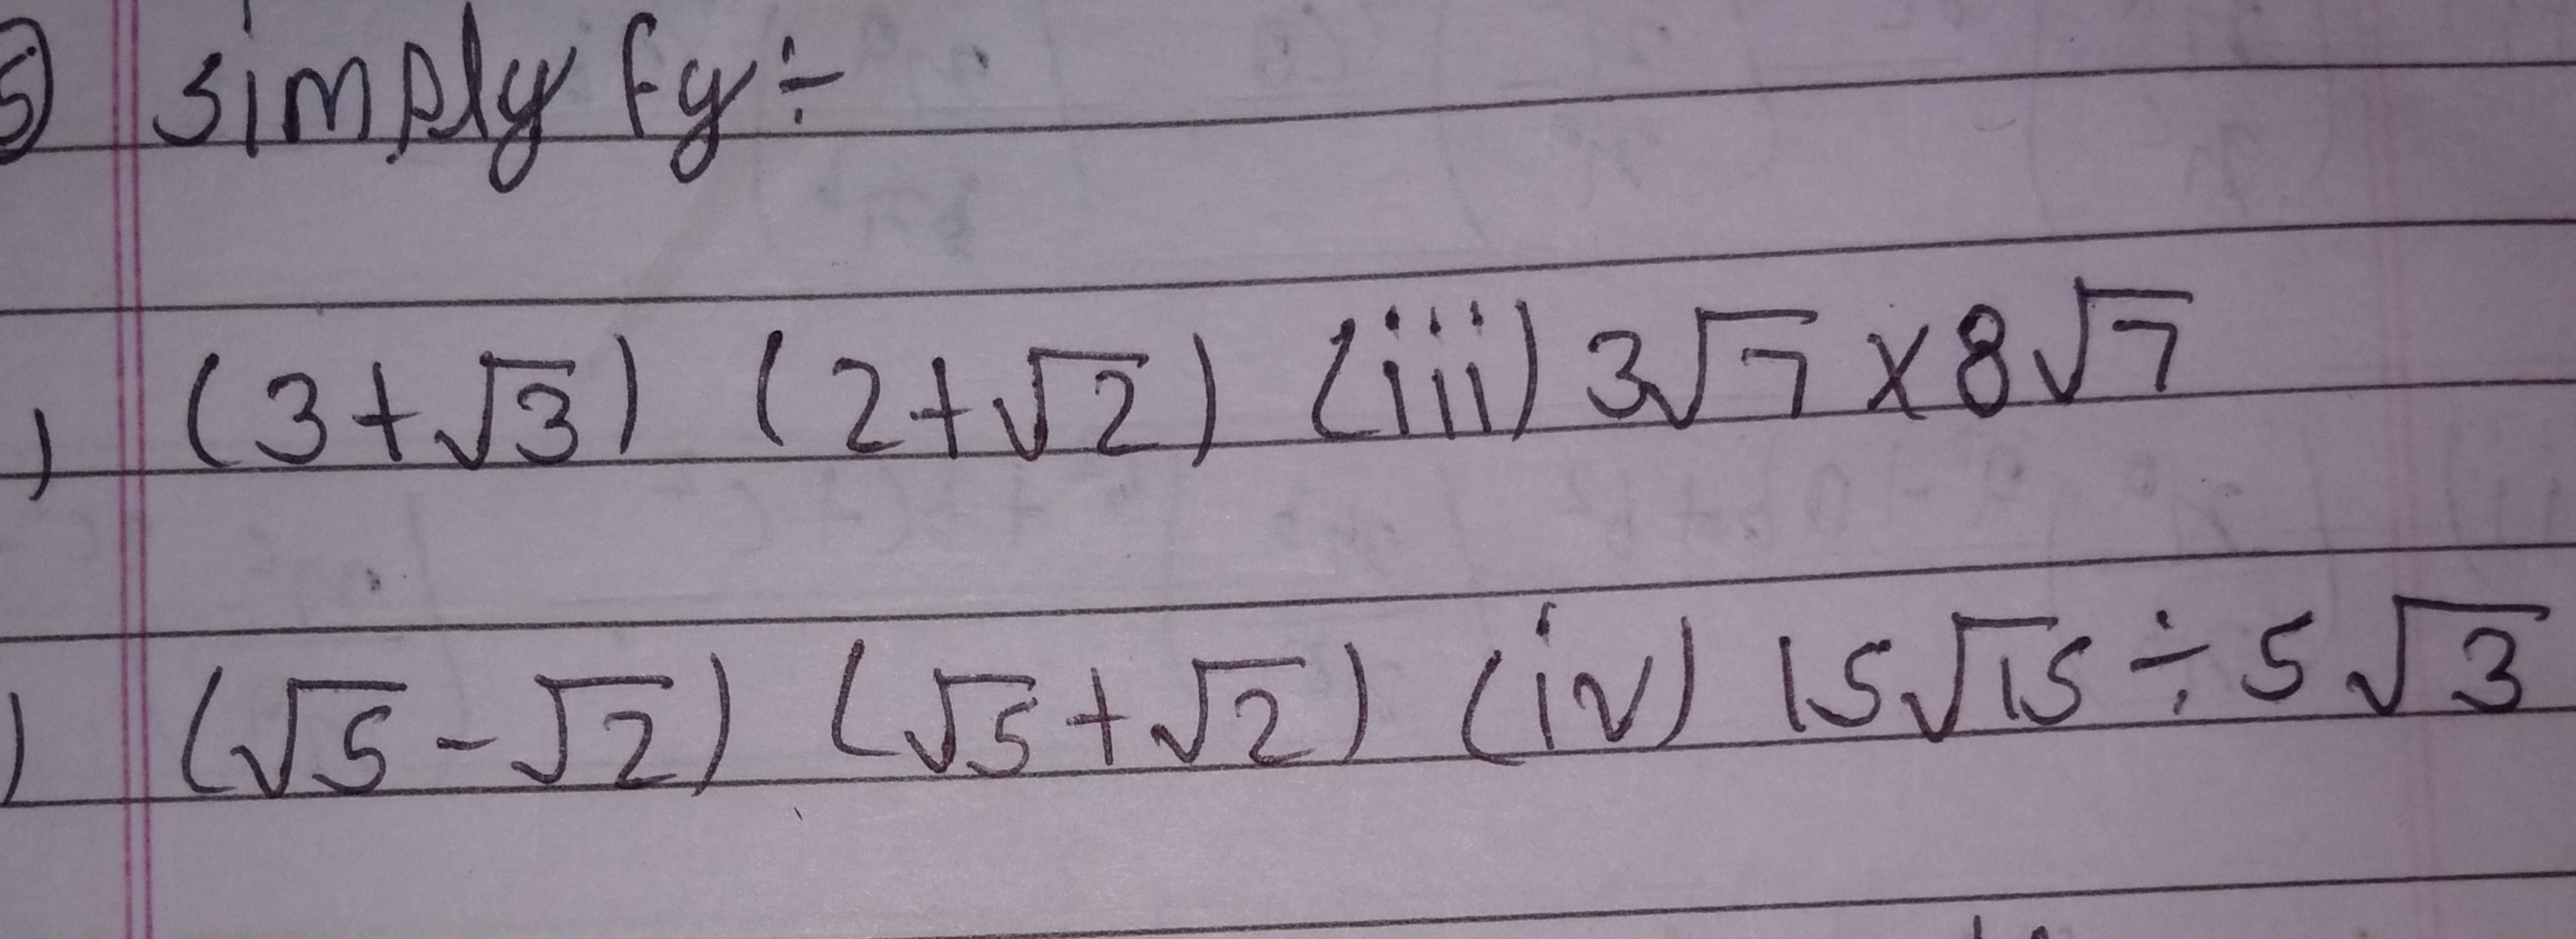 5) Simply fy ÷
) (3+√3) (2+√2) (iii) 3√7 × 8√7
) (√5-√2) (√5+√2) (iv) 15√15 ÷ 5√3